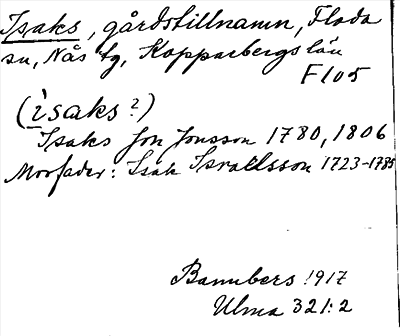 Isaks, gårdstillnamn, Floda
sn, Nås tg, Kopparbergs län
F105
(isaks?)
Isaks Jon Jonsson 1780, 1806
Morfader: Isak Israelsson 1723-1785
Bannbers 1917
Ulma 321:2